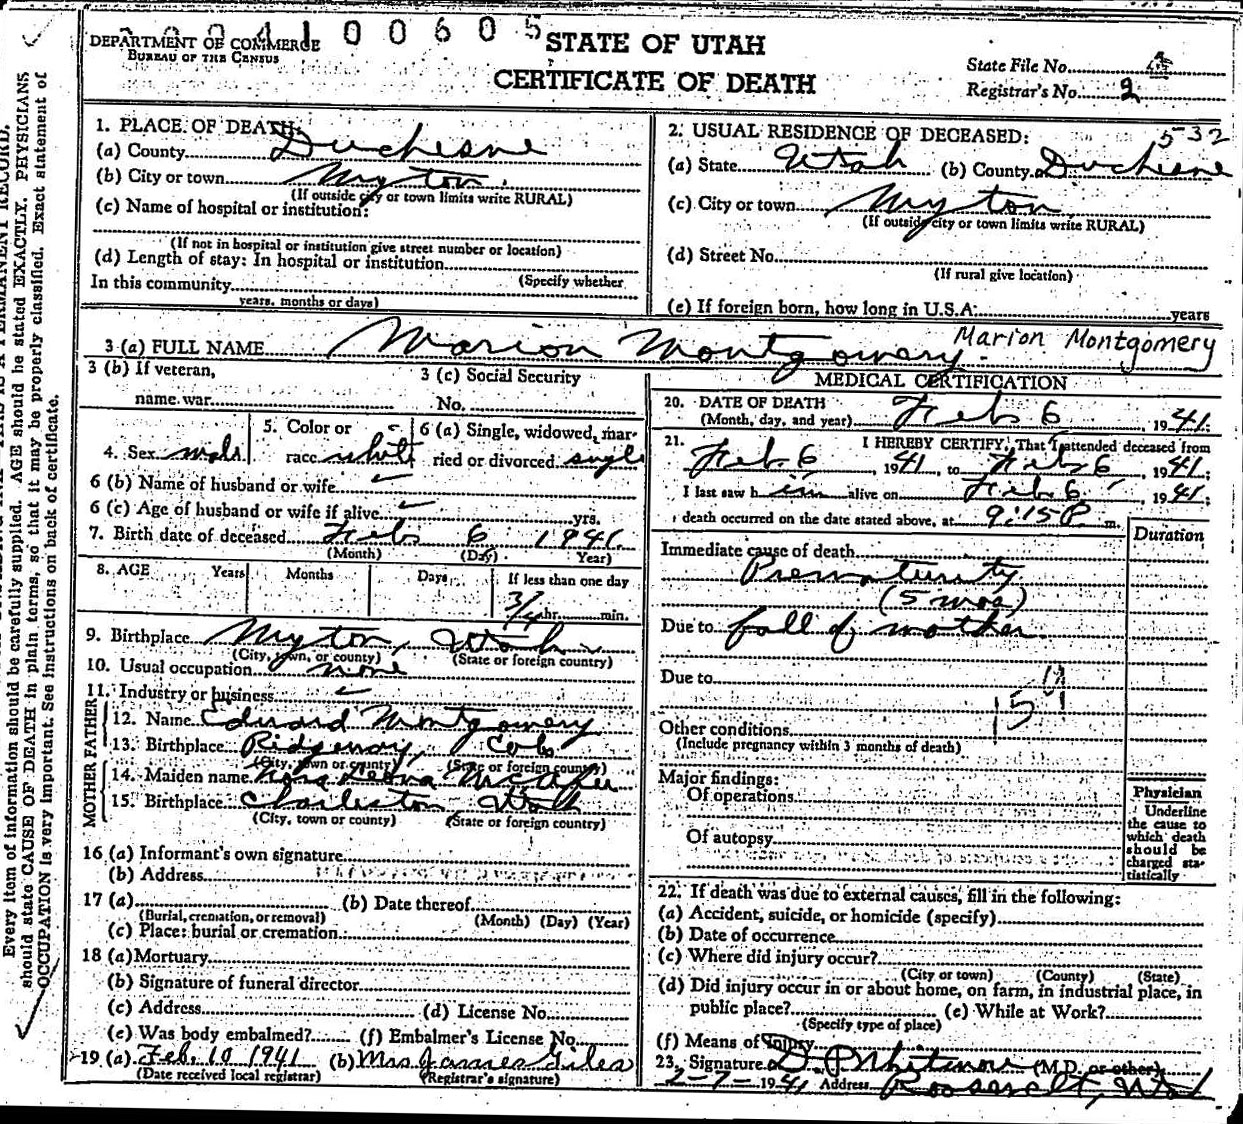 0 0 4 1 0 0 6 0 5
DEPARTMENT OF COMMERCE
BUREAU OF THE CENSUS
STATE OF UTAH
CERTIFICATE OF DEATH
State File No. 4
Registrar's No. 2
1. PLACE OF DEATH:
(a) County Duchesne
(b) City or town Myton.
(If outside city or town limits write RURAL)
(c) Name of hospital or institution:
(If not in hospital or institution give street number or location)
(d) Length of stay: In hospital or institution
(Specify whether
In this community
years, months or days)
2. USUAL RESIDENCE OF DECEASED: 532
(a) State Utah (b) County Duchesne
(c) City or town Myton
(If outside city or town limits write RURAL)
(d) Street No.
(If rural give location)
(e) If foreign born, how long in U.S.A: years
3 (a) FULL NAME Marion Montgomery. Marion Montgomery
3 (b) If veteran,
name war
3 (c) Social Security
No.
4. Sex male
5. Color or
race white
6 (a) Single, widowed, mar-
ried or divorced single
6 (b) Name of husband or wife
6 (c) Age of husband or wife if alive yrs.
7. Birth date of deceased Feb 6 1941
(Month) (Day) Year)
8. AGE Years Months Days If less than one day
3/4 hr. min.
9. Birthplace Myton, Utah
(City, town, or county) (State or foreign country)
10. Usual occupation none
11. Industry or business
FATHER
12. Name Edward Montgomery
13. Birthplace Ridgeway, Colo
(City, town or county) (State or foreign country)
MOTHER
14. Maiden name Leona
15. Birthplace Charleston Utah
(City, town or county) (State or foreign country)
16 (a) Informant's own signature
(b) Address
17 (a) (b) Date thereof
(Burial, cremation, or removal) (Month) (Day) (Year)
(c) Place: burial or cremation
18 (a) Mortuary
(b) Signature of funeral director
(c) Address (d) License No.
(e) Was body embalmed? (f) Embalmer's License No.
19 (a) Feb. 10 1941 (b) Mrs James Giles
(Date received local registrar) (Registrar's signature)
MEDICAL CERTIFICATION
20. DATE OF DEATH
(Month, day, and year) Feb 6 1941.
21. I HEREBY CERTIFY, That I attended deceased from
Feb 6, 1941, to Feb 6, 1941;
I last saw him alive on Feb 6, 1941;
death occurred on the date stated above, at 9:15 P. m.
Duration
Immediate cause of death
Prematurity
(5 mos)
Due to fall of mother
Due to
159
Other conditions
(Include pregnancy within 3 months of death)
Major findings:
Of operations
Of autopsy
Physician
Underline
the cause to
which death
should be
charged sta-
tistically
22. If death was due to external causes, fill in the following:
(a) Accident, suicide, or homicide (specify)
(b) Date of occurrence
(c) Where did injury occur?
(City or town) (County) (State)
(d) Did injury occur in or about home, on farm, in industrial place, in
public place? (e) While at Work?
(Specify type of place)
(f) Means of Injury
23. Signature D. P. Whitmore (M.D. or other)
2-7- 1941 Address Roosevelt, Utah
Every item of information should be carefully supplied. AGE should be stated EXACTLY. PHYSICIANS
should state CAUSE OF DEATH in plain terms, so that it may be properly classified. Exact statement of
OCCUPATION is very important. See instructions on back of certificate.